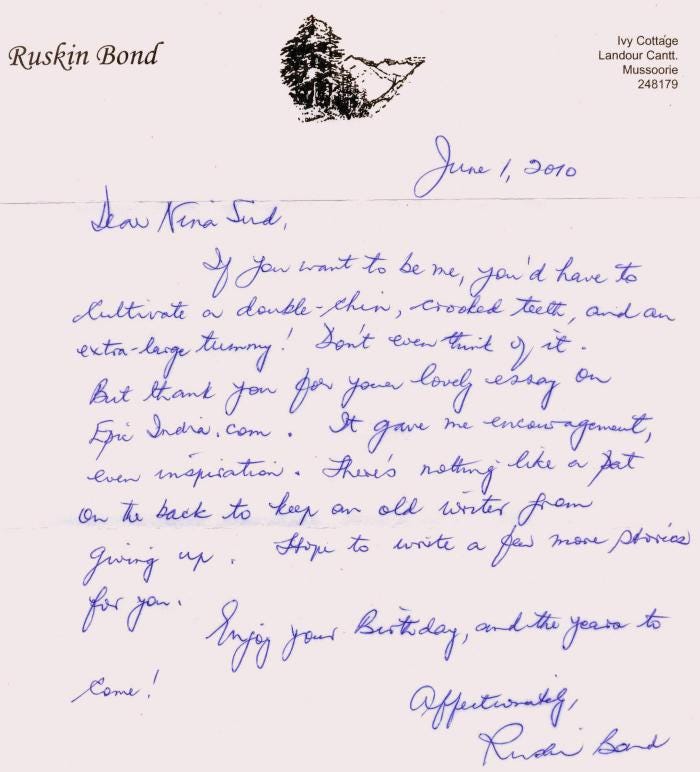 Ruskin Bond
Ivy Cottage
Landour Cantt.
Mussoorie
248179
June 1, 2010
Dear Nina Sud,
If you want to be me, you'd have to
cultivate a double-chin, crooked teeth, and an
extra-large tummy! Don't even think of it.
But thank you for your lovely essay on
Epic India.com. It gave me encouragement,
even inspiration. There's nothing like a pat
on the back to keep an old writer from
giving up. Hope to write a few more stories
for you.
Enjoy your Birthday, and the years to
come!
Affectionately,
Ruskin Bond